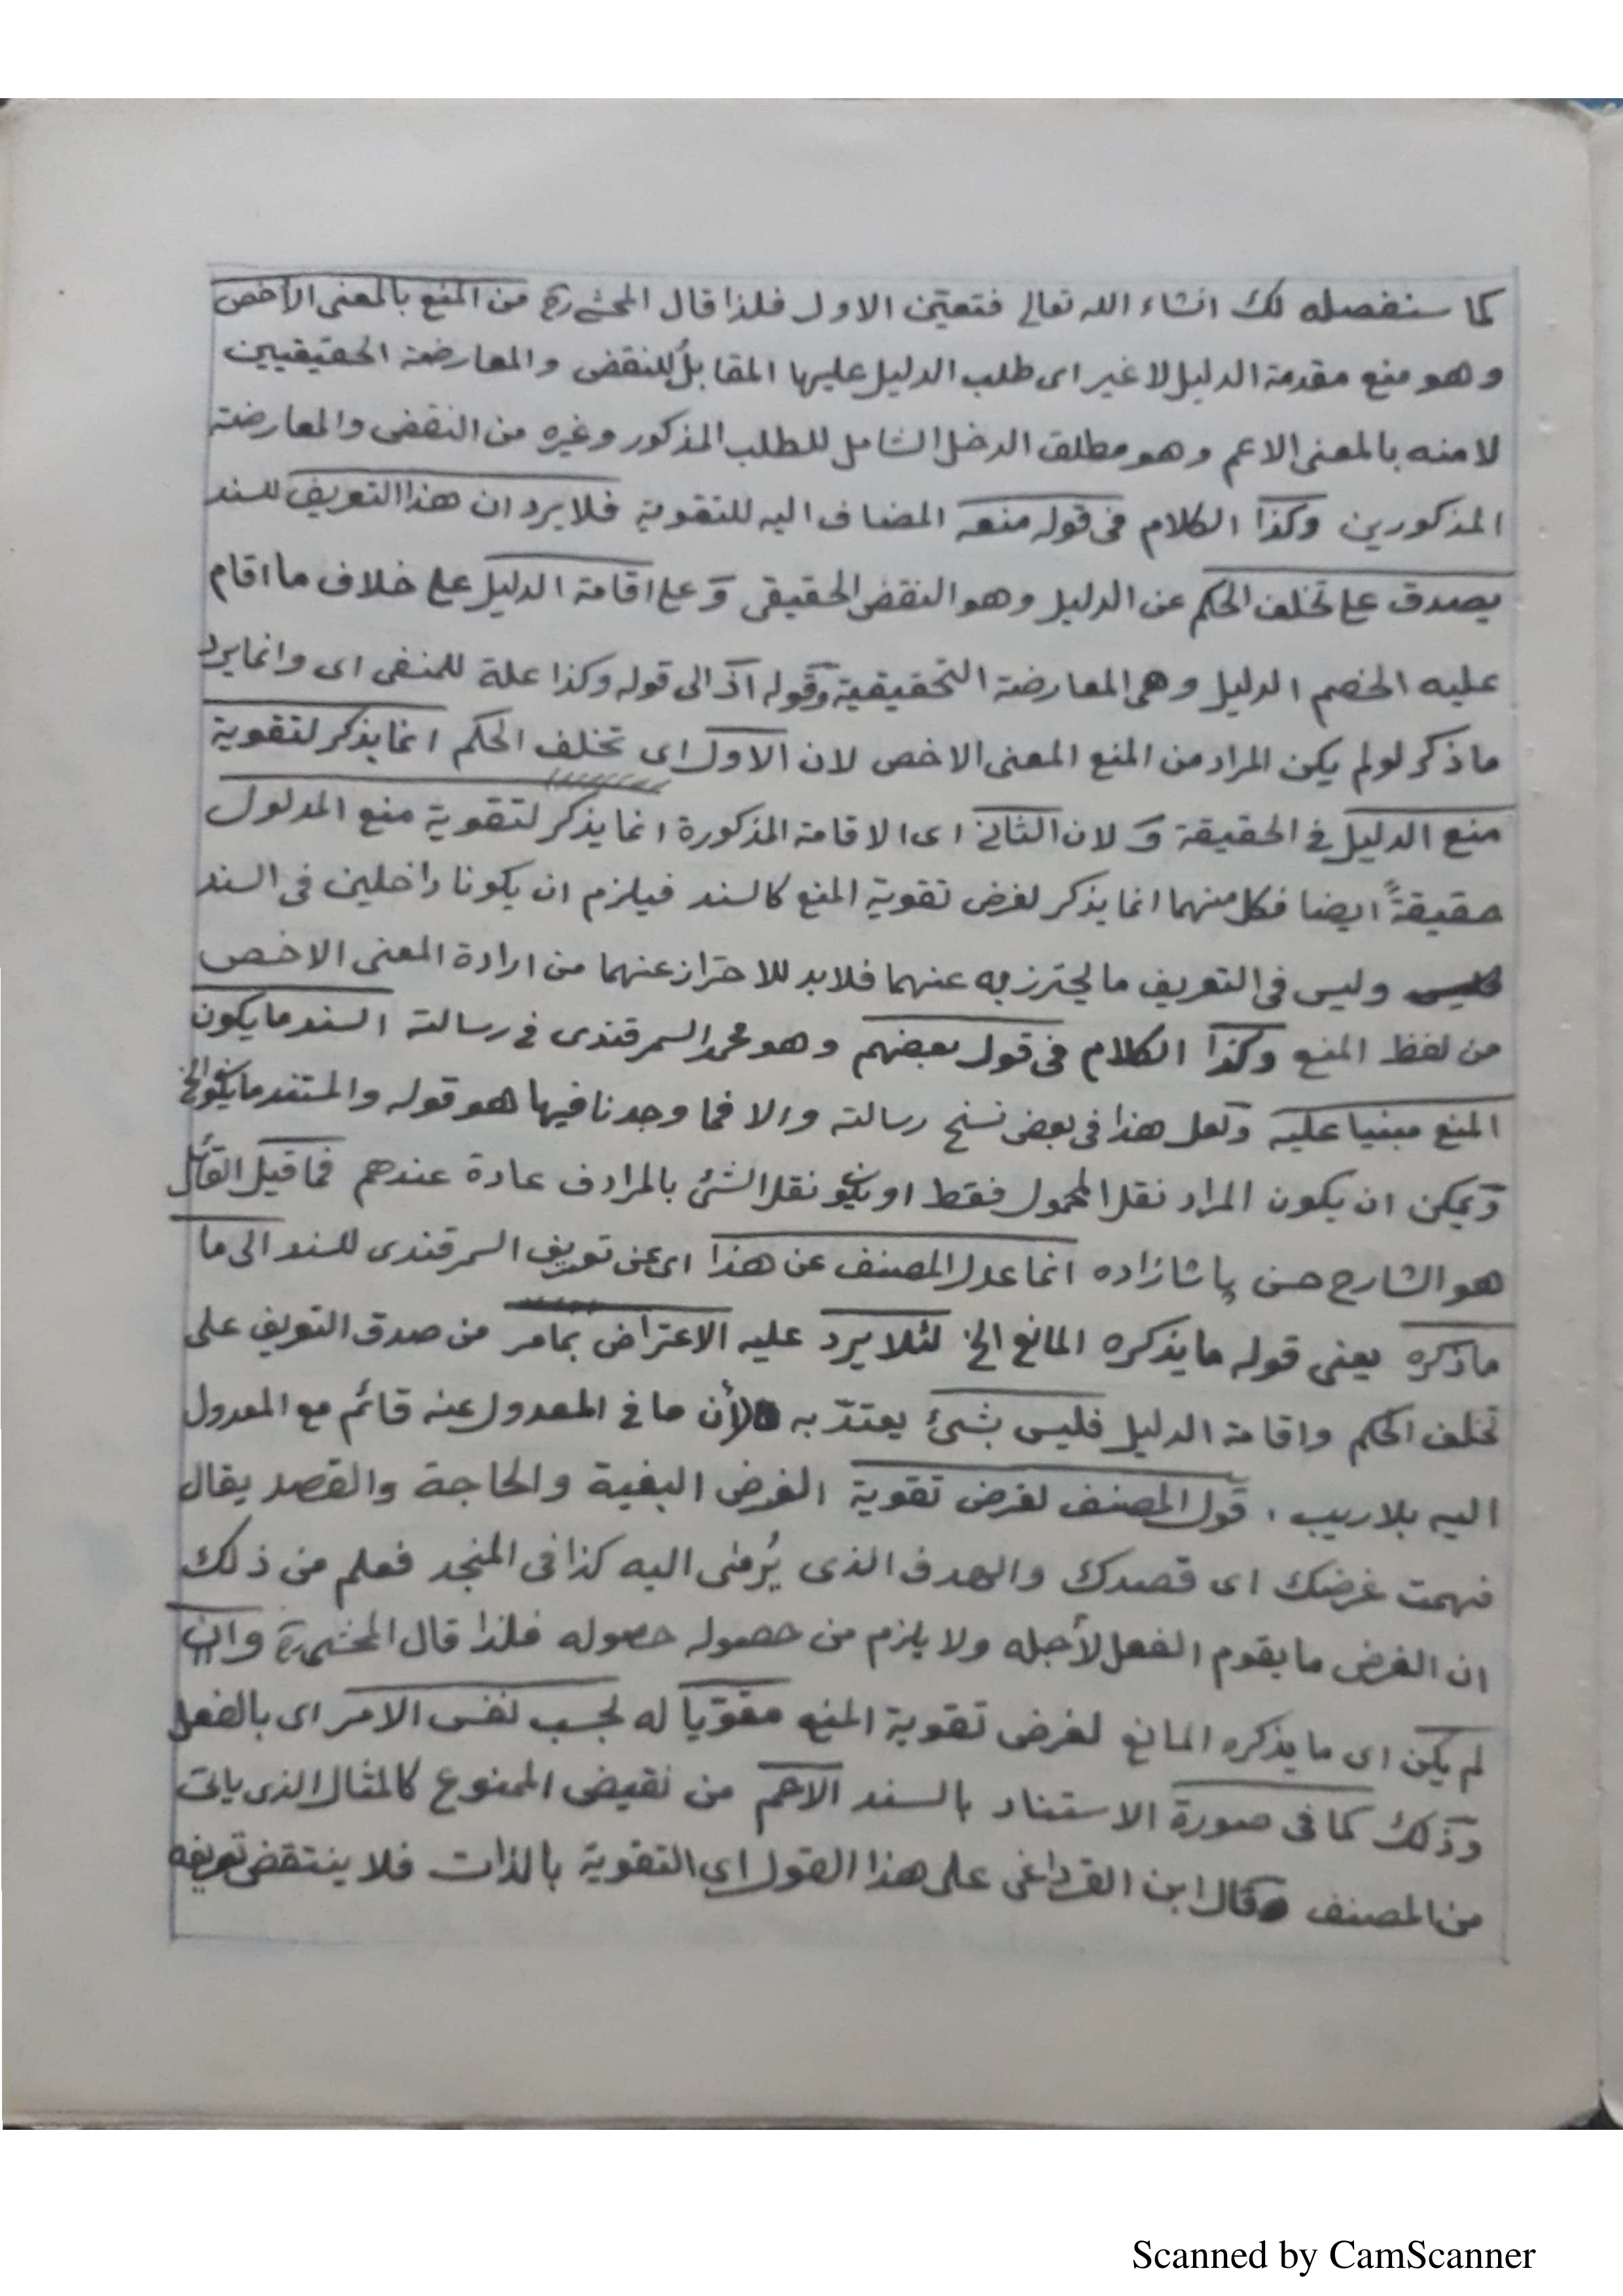 كما سنفصله لك انشاء الله تعالى فتعين الاول فلذا قال المحشى ره من المنع بالمعنى الأخص
وهو منع مقدمة الدليل لا غير اى طلب الدليل عليها المقابلُ للنقض والمعارضة الحقيقيين
لا منه بالمعنى الاعم وهو مطلق الدخل الشامل للطلب المذكور وغيره من النقض والمعارضة
المذكورين وكذا الكلام فى قوله منعه المضاف اليه للتقوية فلا يرد ان هذا التعريف للسند
يصدق على تخلف الحكم عن الدليل وهو النقض الحقيقى وعلى اقامة الدليل على خلاف ما اقام
عليه الخصم الدليل وهى المعارضة التحقيقية وقوله اذ الى قوله وكذا علة للمنفى اى وانما يرد
ما ذكر لو لم يكن المراد من المنع المعنى الاخص لان الاول اى تخلف الحكم انما يذكر لتقوية
منع الدليل فى الحقيقة و لان الثانى اى الاقامة المذكورة انما يذكر لتقوية منع المدلول
حقيقةً ايضا فكل منهما انما يذكر لغرض تقوية المنع كالسند فيلزم ان يكونا داخلين فى السند
وليس فى التعريف ما يحترز به عنهما فلا بد للاحتراز عنهما من ارادة المعنى الاخص
من لفظ المنع وكذا الكلام فى قول بعضهم وهو محمد السمرقندى فى رسالته السند ما يكون
المنع مبنيا عليه ولعل هذا فى بعض نسخ رسالته والا فما وجدنا فيها هو قوله والمستند ما يكون الخ
ويمكن ان يكون المراد نقل المحمول فقط او يكون نقل الشئ بالمرادف عادة عندهم فما قيل القائل
هو الشارح حسن پاشازاده انما عدل المصنف عن هذا اى عن تعريف السمرقندى للسند الى ما
ماذكره يعنى قوله ما يذكره المانع الخ لئلا يرد عليه الاعتراض بمامر من صدق التعريف على
تخلف الحكم واقامة الدليل فليس بشئ يعتدّ به لأن ما فى المعدول عنه قائم مع المعدول
اليه بلا ريب . قول المصنف لغرض تقوية الغرض البغية والحاجة والقصد يقال
فهمت غرضك اى قصدك والهدف الذى يُرمٰى اليه كذا فى المنجد فعلم من ذلك
ان الغرض ما يقوم الفعل لأجله ولا يلزم من حصوله حصوله فلذا قال المحشى ره وان
لم يكن اى ما يذكره المانع لغرض تقوية المنع مقوّياً له بحسب نفس الامر اى بالفعل
وذلك كما فى صورة الاستناد بالسند الاعم من نقيض الممنوع كالمثال الذى ياتى
من المصنف وقال ابن القرداغى على هذا القول اى التقوية بالذات فلا ينتقض تعريفه
Scanned by CamScanner